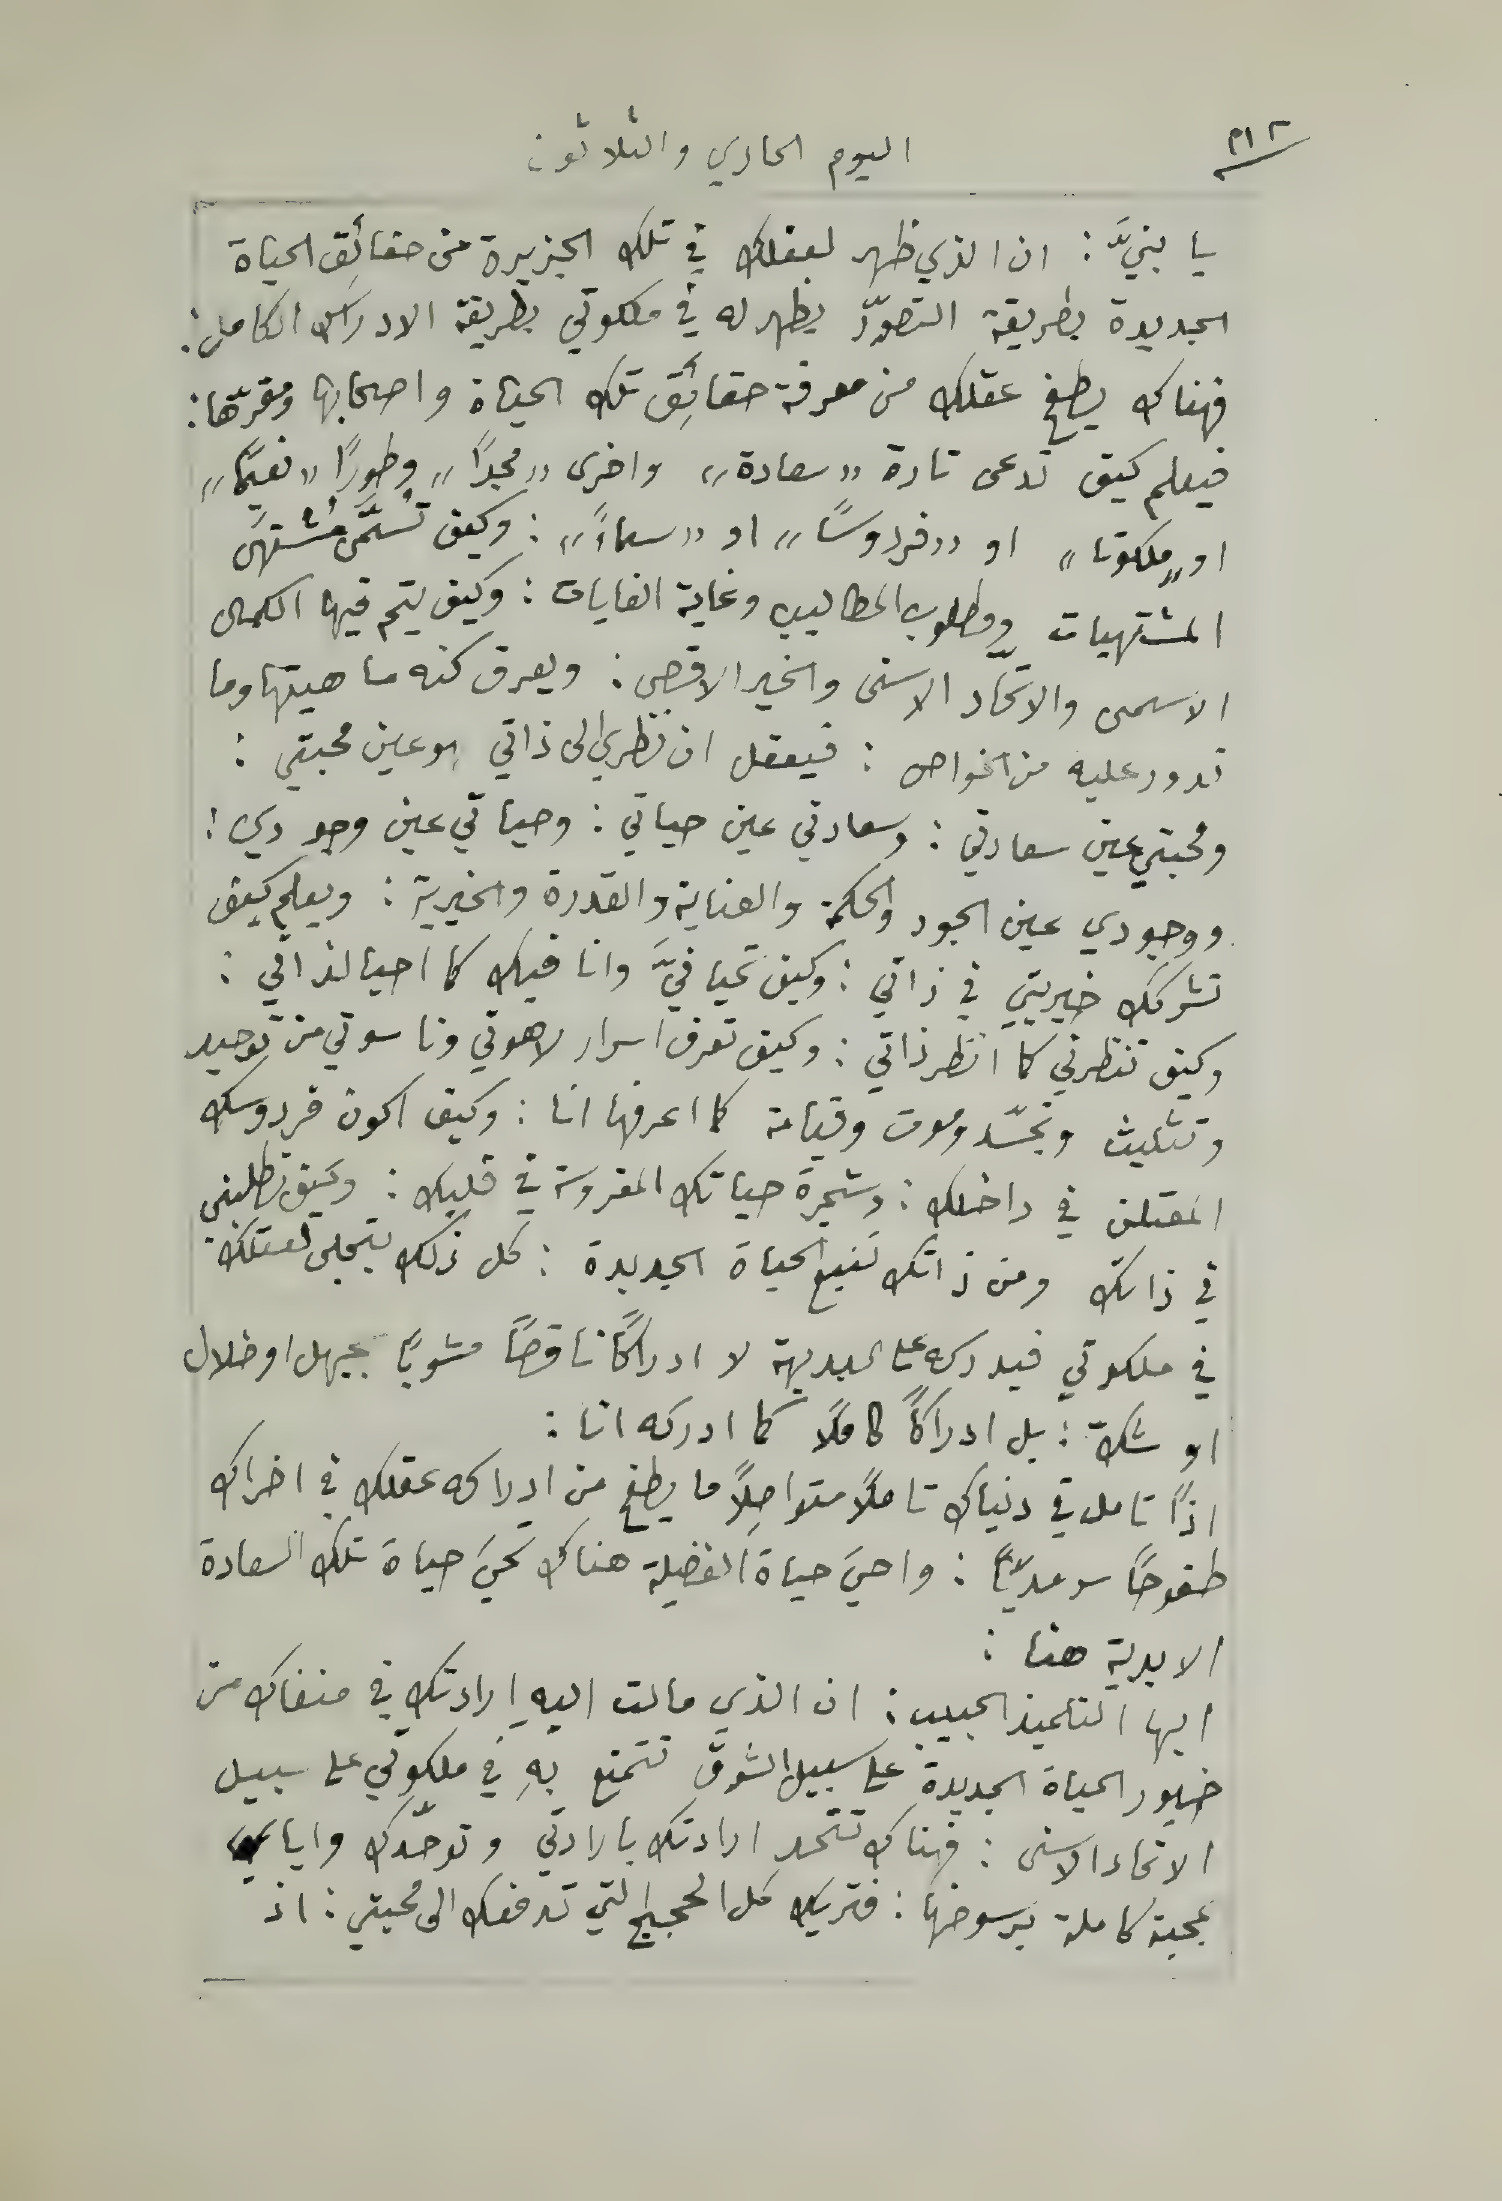 ٣١٢
اليوم الحادي والثلاثون
يا بنيَّ : ان الذي ظهر لعقلك في تلك الجزيرة من حقائق الحياة
الجديدة بطريقة التصوّر يظهر له في ملكوتي بطريقة الادراك الكامل :
فهناك يطفح عقلك من معرفة حقائق تلك الحياة واصحابها ومقرّها :
فيعلم كيف تدعى تارة «سعادة» واخرى «مجدًا» وطورًا «نعيمًا»
او «ملكوتا» او «فردوسًا» او «سماءً» : وكيف تُسمَّى مُشتهَى
المشتهيات ومطلوب المطاليب وغاية الغايات : وكيف يتم فيها الكمال
الاسمى والاتحاد الاسنى والخير الاقصى : ويعرف كنه ماهيتها وما
تدور عليه من الخواص : فيعقل ان نظري الى ذاتي هو عين محبتي :
ومحبتي عين سعادتي : وسعادتي عين حياتي : وحياتي عين وجودي :
ووجودي عين الجود والحكمة والعناية والقدرة والخيرية : ويعلم كيف
تشركك خيريتي في ذاتي : وكيف تحيا فيَّ وانا فيك كما احيا لذاتي :
وكيف تنظرني كما انظر ذاتي : وكيف تعرف اسرار لاهوتي وناسوتي من توحيد
وتثليث وتجسّد وموت وقيامة كما اعرفها انا : وكيف اكون فردوسك
المعتلن في داخلك : وشجرة حياتك المغروسة في قلبك : وكيف تطلبني
في ذاتك ومن ذاتك تنبع الحياة الجديدة : كل ذلك يتجلى لعقلك
في ملكوتي فيدركه على البديهة لا ادراكًا ناقصًا مشوبًا بجهل او ضلال
او شكّ : بل ادراكًا كاملًا كما ادركه انا :
اذًا تامل في دنياك تاملًا متواصلًا ما يطفح من ادراكه عقلك في اخراك
طفوحًا سرمديًا : واحيَ حياة الفضيلة هناك تحيَ حياة تلك السعادة
الابدية هنا :
ايها التلميذ الحبيب : ان الذي مالت اليهِ ارادتك في منفاك من
خيور الحياة الجديدة على سبيل الشوق تتمتع بهِ في ملكوتي على سبيل
الاتحاد الاسنى : فهناك تتحد ارادتك بارادتي وتوحّدك واياي
بمحبة كاملة برسوخها : فتريك كل الحجج التي تدفعك الى محبتي : اذ